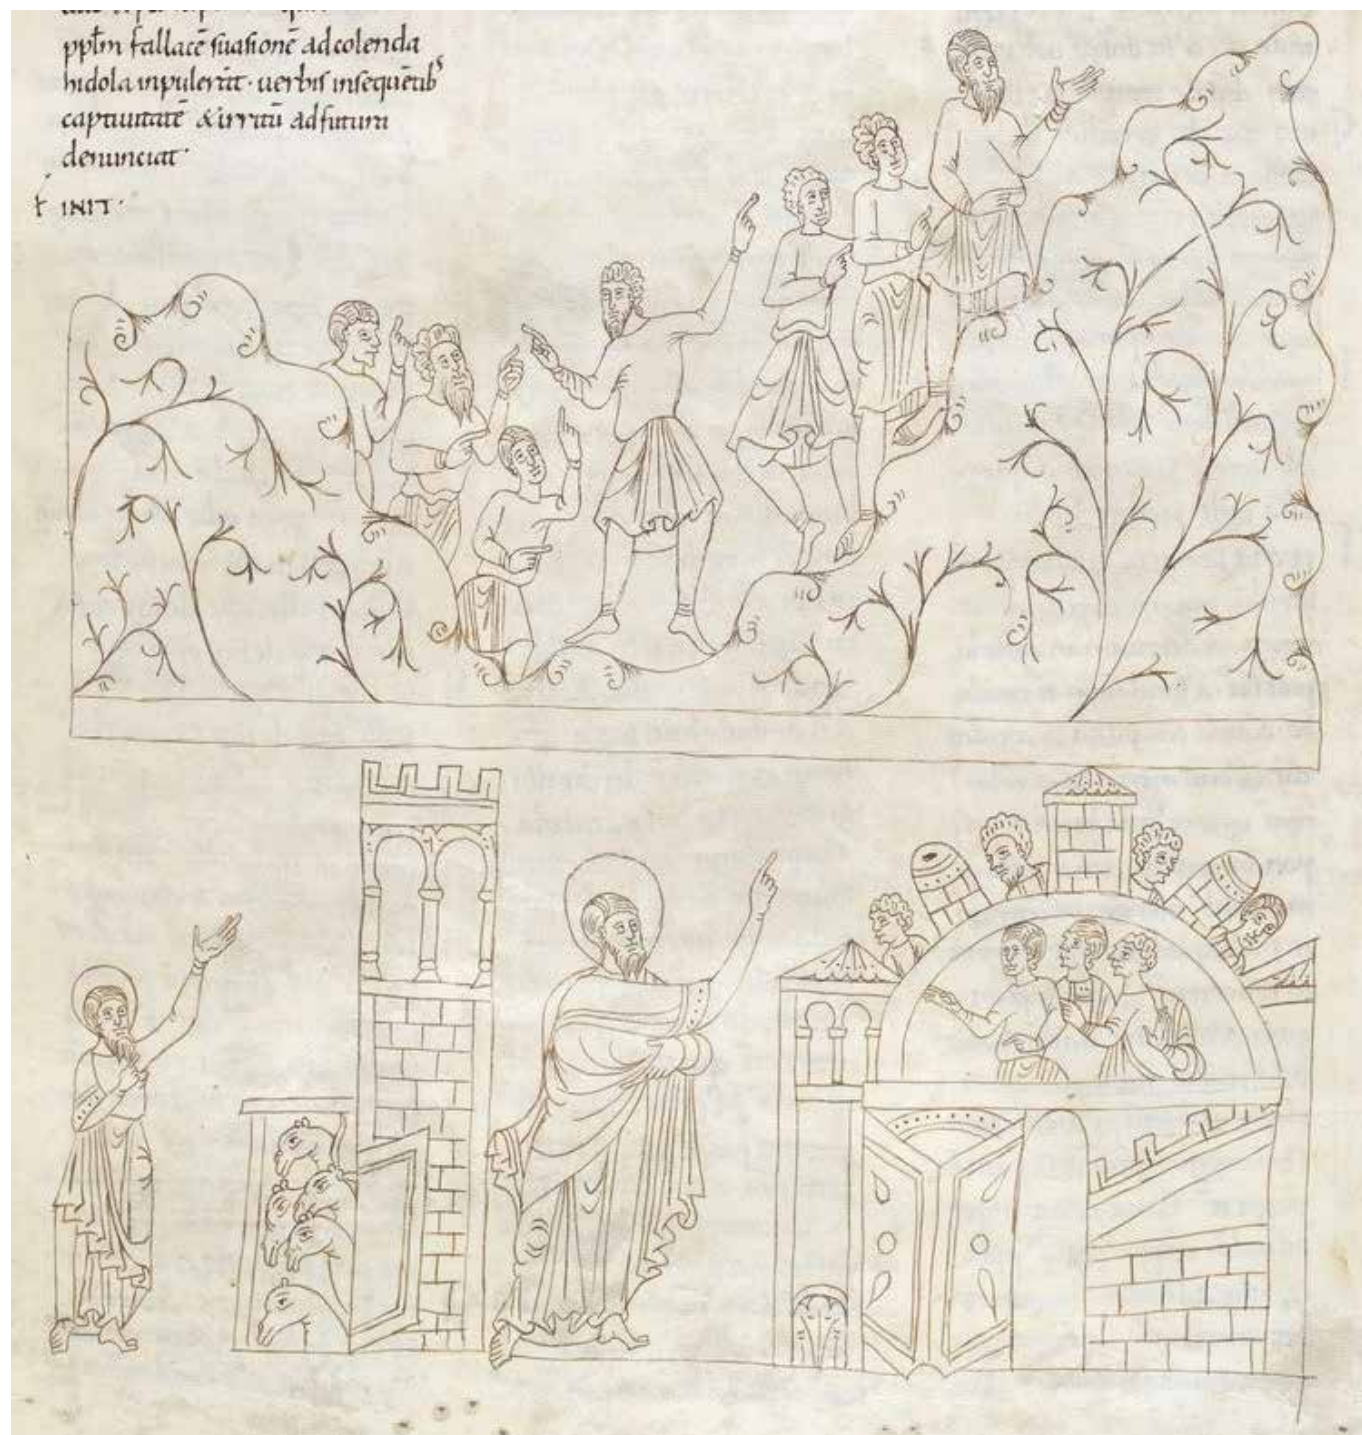 ppl̄m fallacē suasionē ad colenda
hidola inpulerīt · uerbis insequētibˢ
captiuitatē & irritū ad futura
denunciat ·
FINIT ·